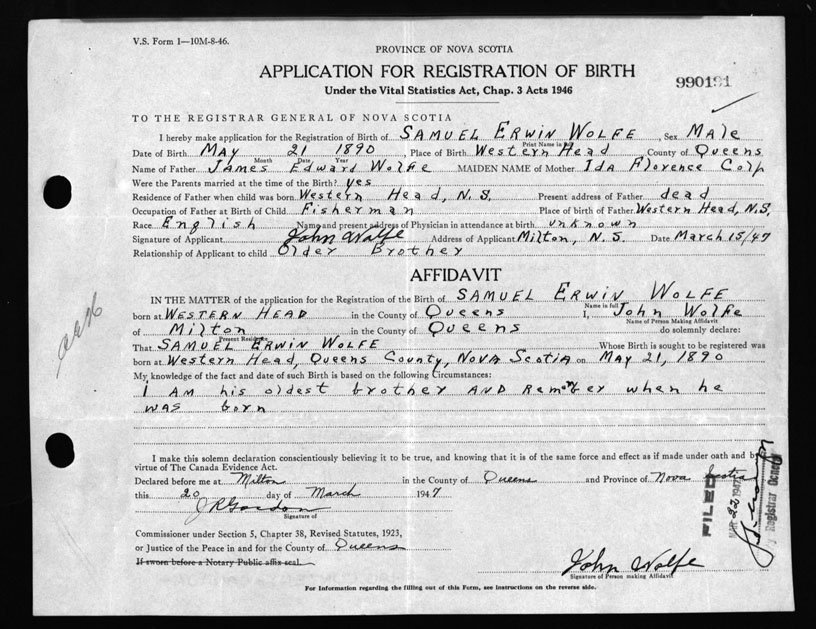 V.S. Form 1—10M-8-46.
PROVINCE OF NOVA SCOTIA
APPLICATION FOR REGISTRATION OF BIRTH
990191
Under the Vital Statistics Act, Chap. 3 Acts 1946
TO THE REGISTRAR GENERAL OF NOVA SCOTIA
I hereby make application for the Registration of Birth of SAMUEL ERWIN WOLFE, Sex MALe
Print Name in full
Date of Birth MAY 21 1890, Place of Birth Western Head County of Queens
Month Date Year
Name of Father JAMES Edward Wolfe MAIDEN NAME of Mother Ida Florence Colp
Were the Parents married at the time of the Birth? yes
Residence of Father when child was born Western Head, N.S. Present address of Father dead
Occupation of Father at Birth of Child Fisherman Place of birth of Father Western Head, N.S.
Race English Name and present address of Physician in attendance at birth unknown
Signature of Applicant John Wolfe Address of Applicant Milton, N.S. Date March 15/47
Relationship of Applicant to child Older Brother
AFFIDAVIT
IN THE MATTER of the application for the Registration of the Birth of SAMUEL ERWIN WOLFE
Name in full
born at WESTERN HEAD in the County of Queens I, John Wolfe
Name of Person Making Affidavit
of Milton in the County of Queens do solemnly declare:
Present Residence
That SAMUEL ERWIN WOLFE Whose Birth is sought to be registered was
born at Western Head, Queens County, NOVA SCOTIA on May 21, 1890
My knowledge of the fact and date of such Birth is based on the following Circumstances:
i AM his oldest brother AND Remember when he
was born
I make this solemn declaration conscientiously believing it to be true, and knowing that it is of the same force and effect as if made under oath and by
virtue of The Canada Evidence Act.
Declared before me at Milton in the County of Queens and Province of Nova Scotia
this 20 day of March 1947
J R Gordon
Signature of
Commissioner under Section 5, Chapter 38, Revised Statutes, 1923,
or Justice of the Peace in and for the County of Queens
If sworn before a Notary Public affix seal.
John Wolfe
Signature of Person making Affidavit
For Information regarding the filling out of this Form, see instructions on the reverse side.
FILED
MAR 22 1947
Registrar General